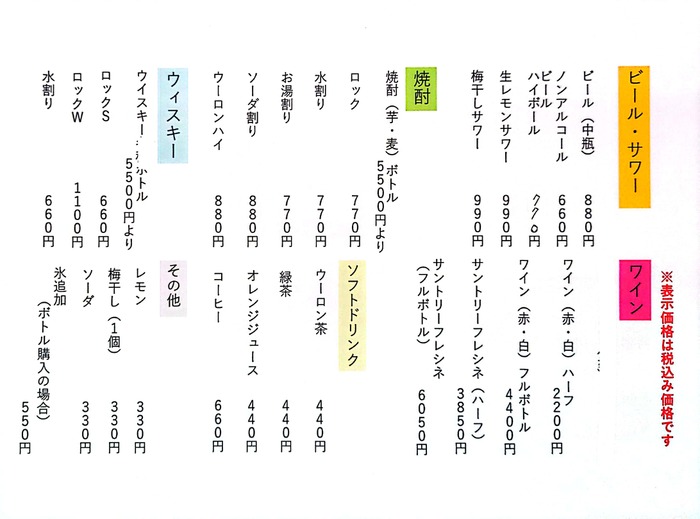 ※表示価格は税込み価格です
ビール・サワー
ビール（中瓶） 880円
ノンアルコール
ビール 660円
ハイボール 770円
生レモンサワー 990円
梅干しサワー 990円
焼酎
焼酎（芋・麦）ボトル
5500円より
ロック 770円
水割り 770円
お湯割り 770円
ソーダ割り 880円
ウーロンハイ 880円
ウィスキー
ウイスキー ボトル
5500円より
ロックS 660円
ロックW 1100円
水割り 660円
ワイン
ワイン（赤・白）ハーフ
2200円
ワイン（赤・白）フルボトル
4400円
サントリーフレシネ（ハーフ）
3850円
サントリーフレシネ
（フルボトル） 6050円
ソフトドリンク
ウーロン茶 440円
緑茶 440円
オレンジジュース 440円
コーヒー 660円
その他
レモン 330円
梅干し（1個） 330円
ソーダ 330円
氷追加
（ボトル購入の場合）
550円